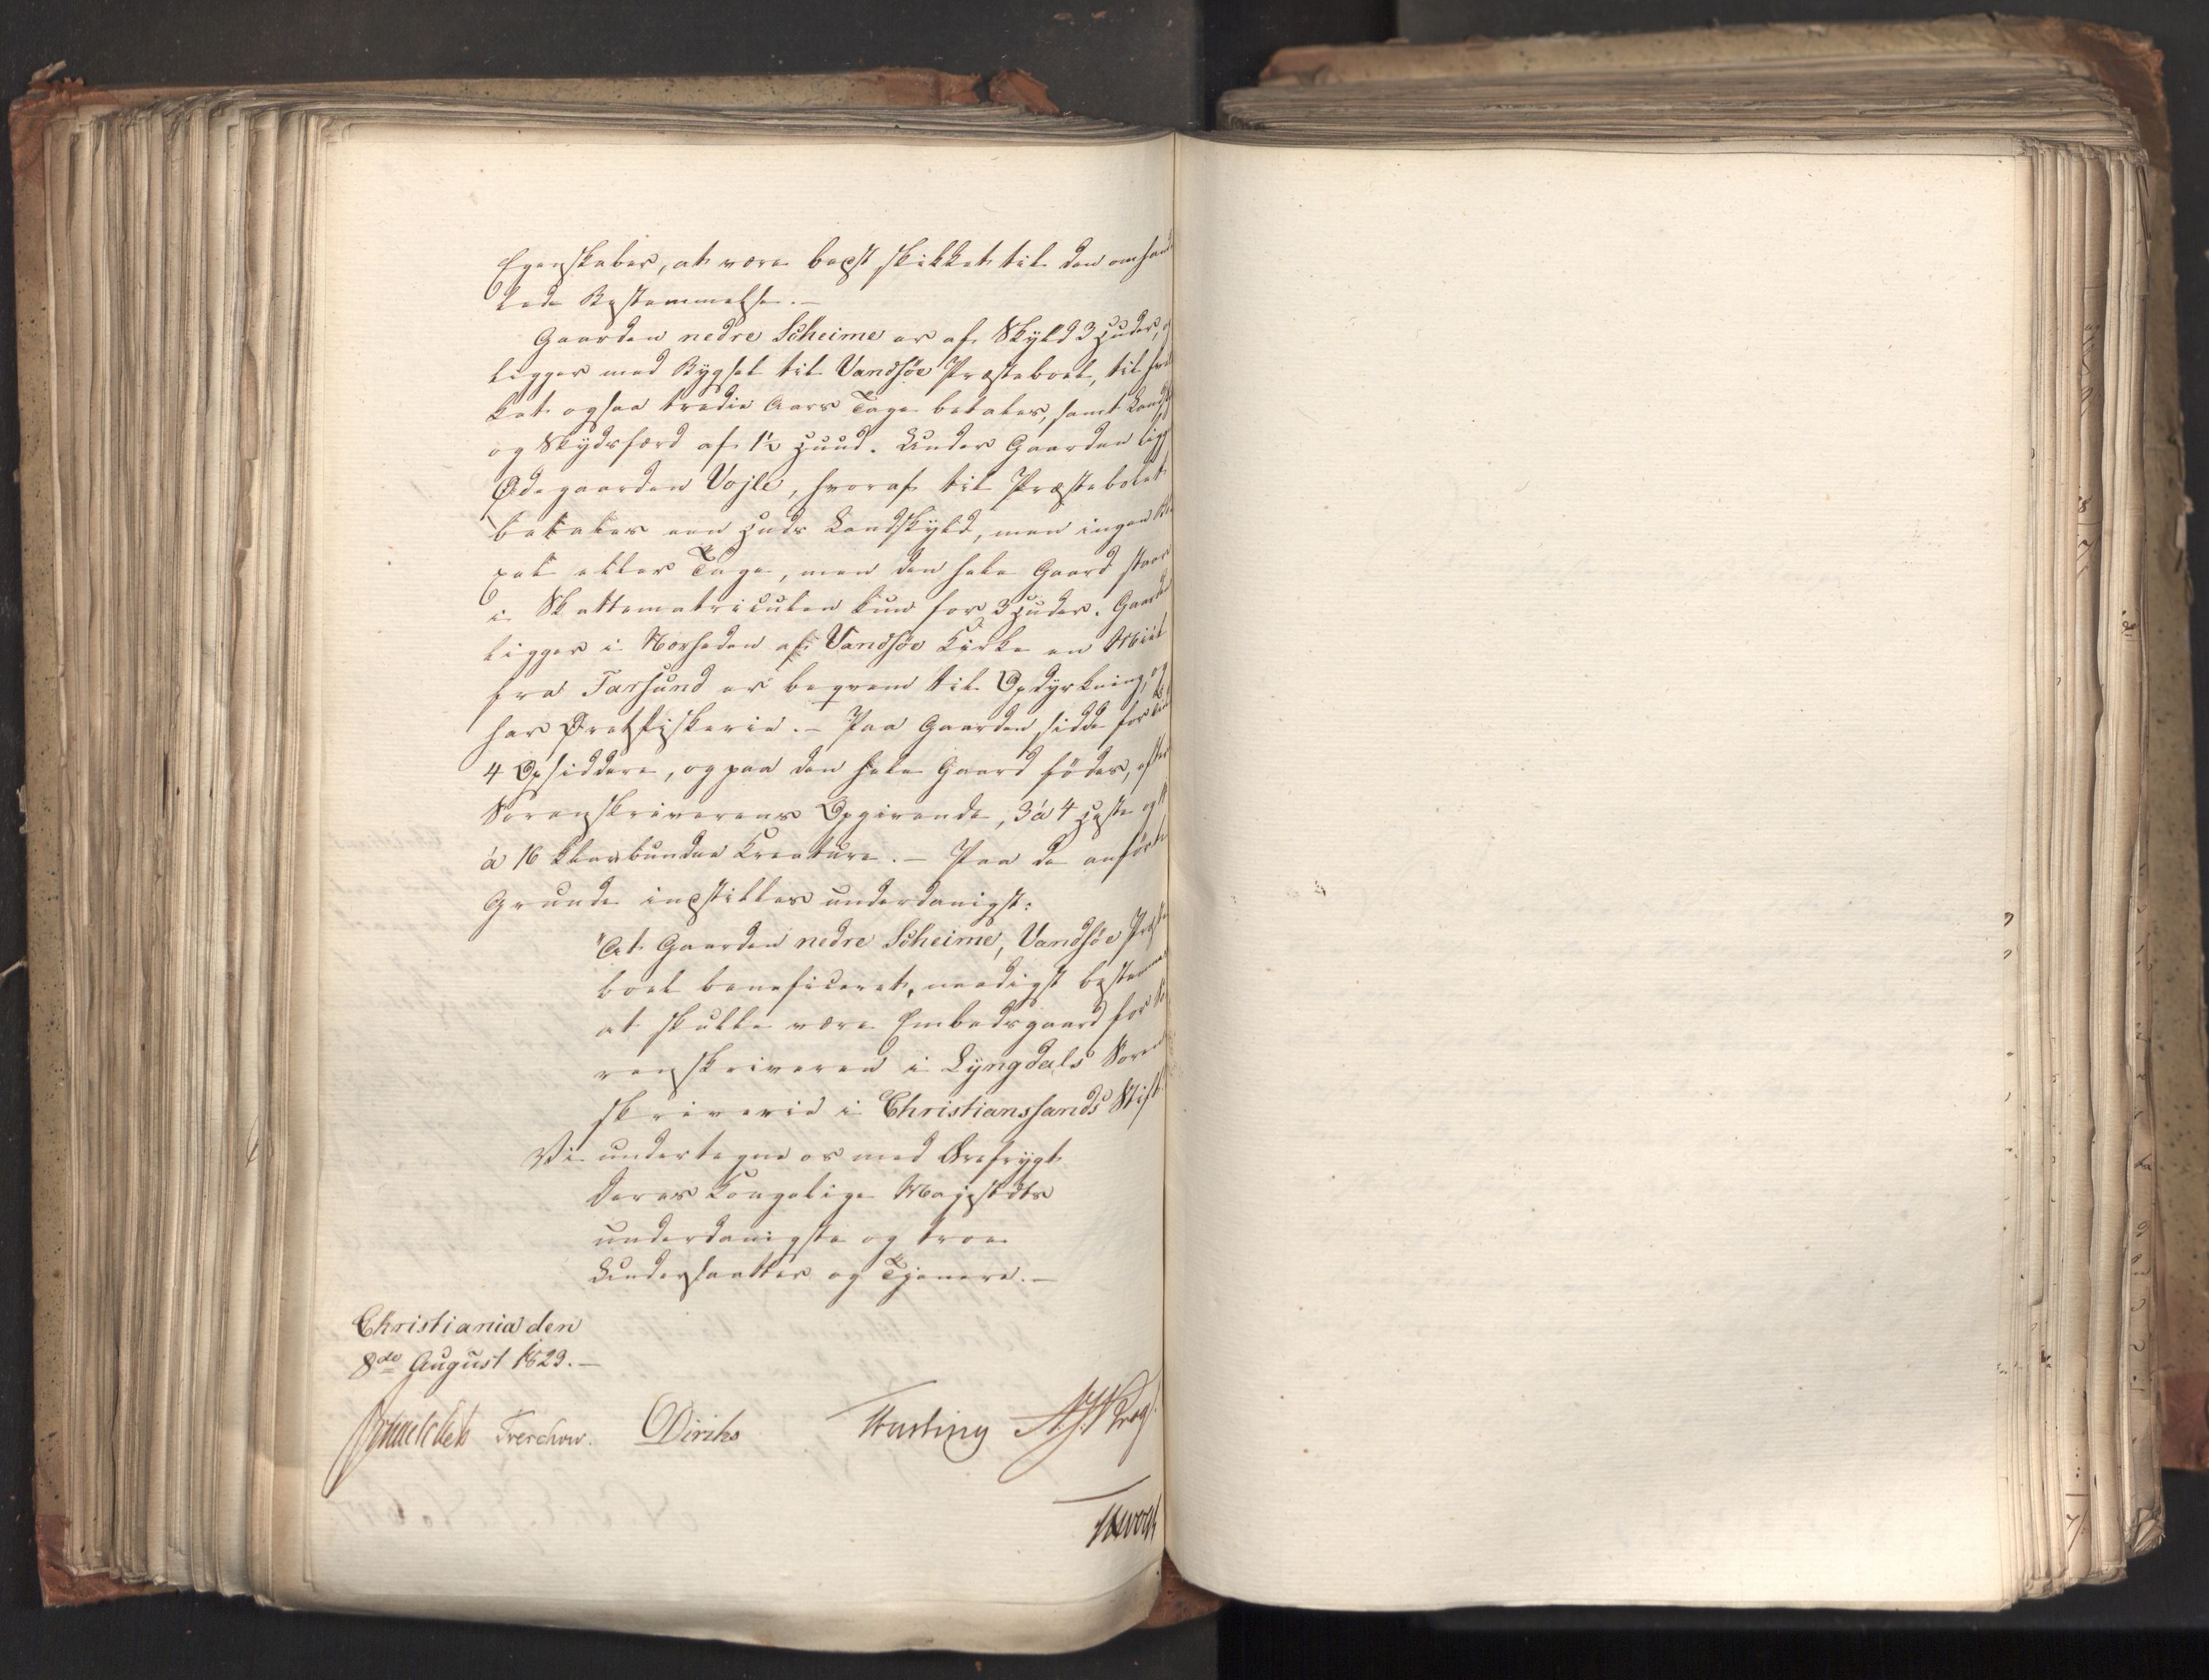 Egenskaber, at være best skikket til den omhand
lede Bestemmelse.—
Gaarden nedre Scheime er af Skyld 3 Huder,
ligger med Bygsel til Vandsøe Præsteboel, til hvil
ket ogsaa tredie Aars Tage betales, samt Landsk
og Skydsferd af 1½ Huud. Under Gaarden ligg
Ødegaarden Vojle, hvoraf til Præstebolet
betales een Huds Landskyld, men ingen
eller Tage, men den hele Gaard staar
i Skattematriculen kun for 3 Huder. Gaarden
ligger i Nærheden af Vandsøe Kirke en Miil
fra Farsund er beqvem til Opdyrkning, og
har Ørretfiskerie.— Paa Gaarden sidde for
4 Opsiddere, og paa den hele Gaard fødes, efter
Sorenskriverens Opgivende, 3 á 4 Heste og
á 16 klovbundne Kreature.— Paa de anførte
Grunde indstilles underdanigst:
"At Gaarden nedre Scheime, Vandsøe Præste
boel beneficeret, naadigst bestemmes
at skulle være Embedsgaard for So
renskriveren i Lyngdals Soren
skriverie i Christianssands Stift
Vi undertegne os med Ærefrygt
Deres Kongelige Majestæts
underdanigste og troe
Undersaatter og Tjenere.—
Christiania den
8de August 1829.—
Treschow. Diriks